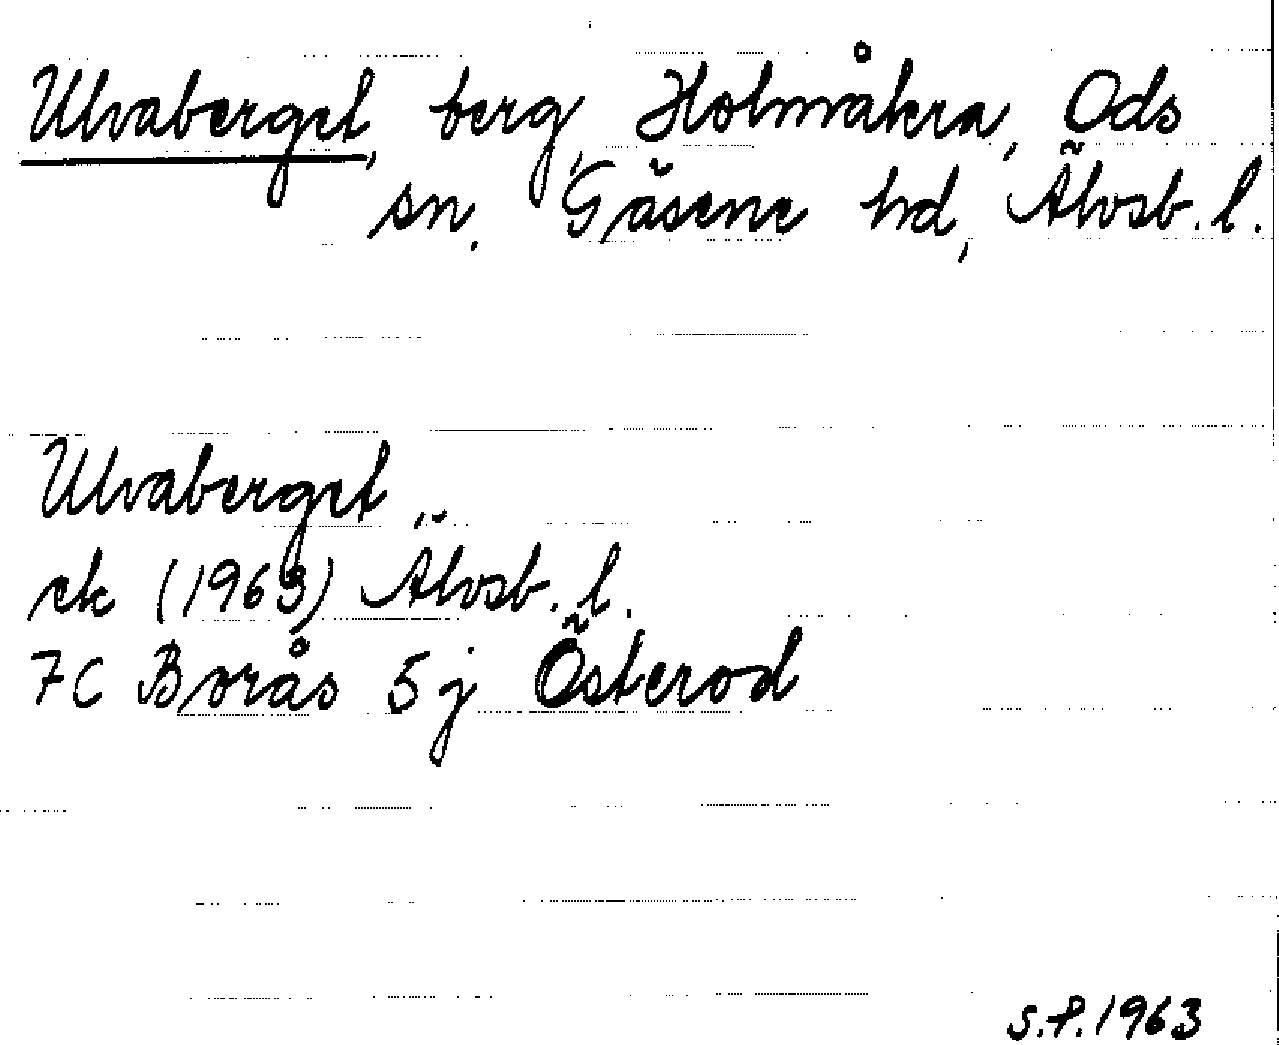 Ulvaberget, berg, Holmåkra, Ods
sn. Gäsene hd, Älvsb. l.
Ulvaberget
ek (1963) Älvsb. l.
7C Borås 5j Österod
S.F. 1963